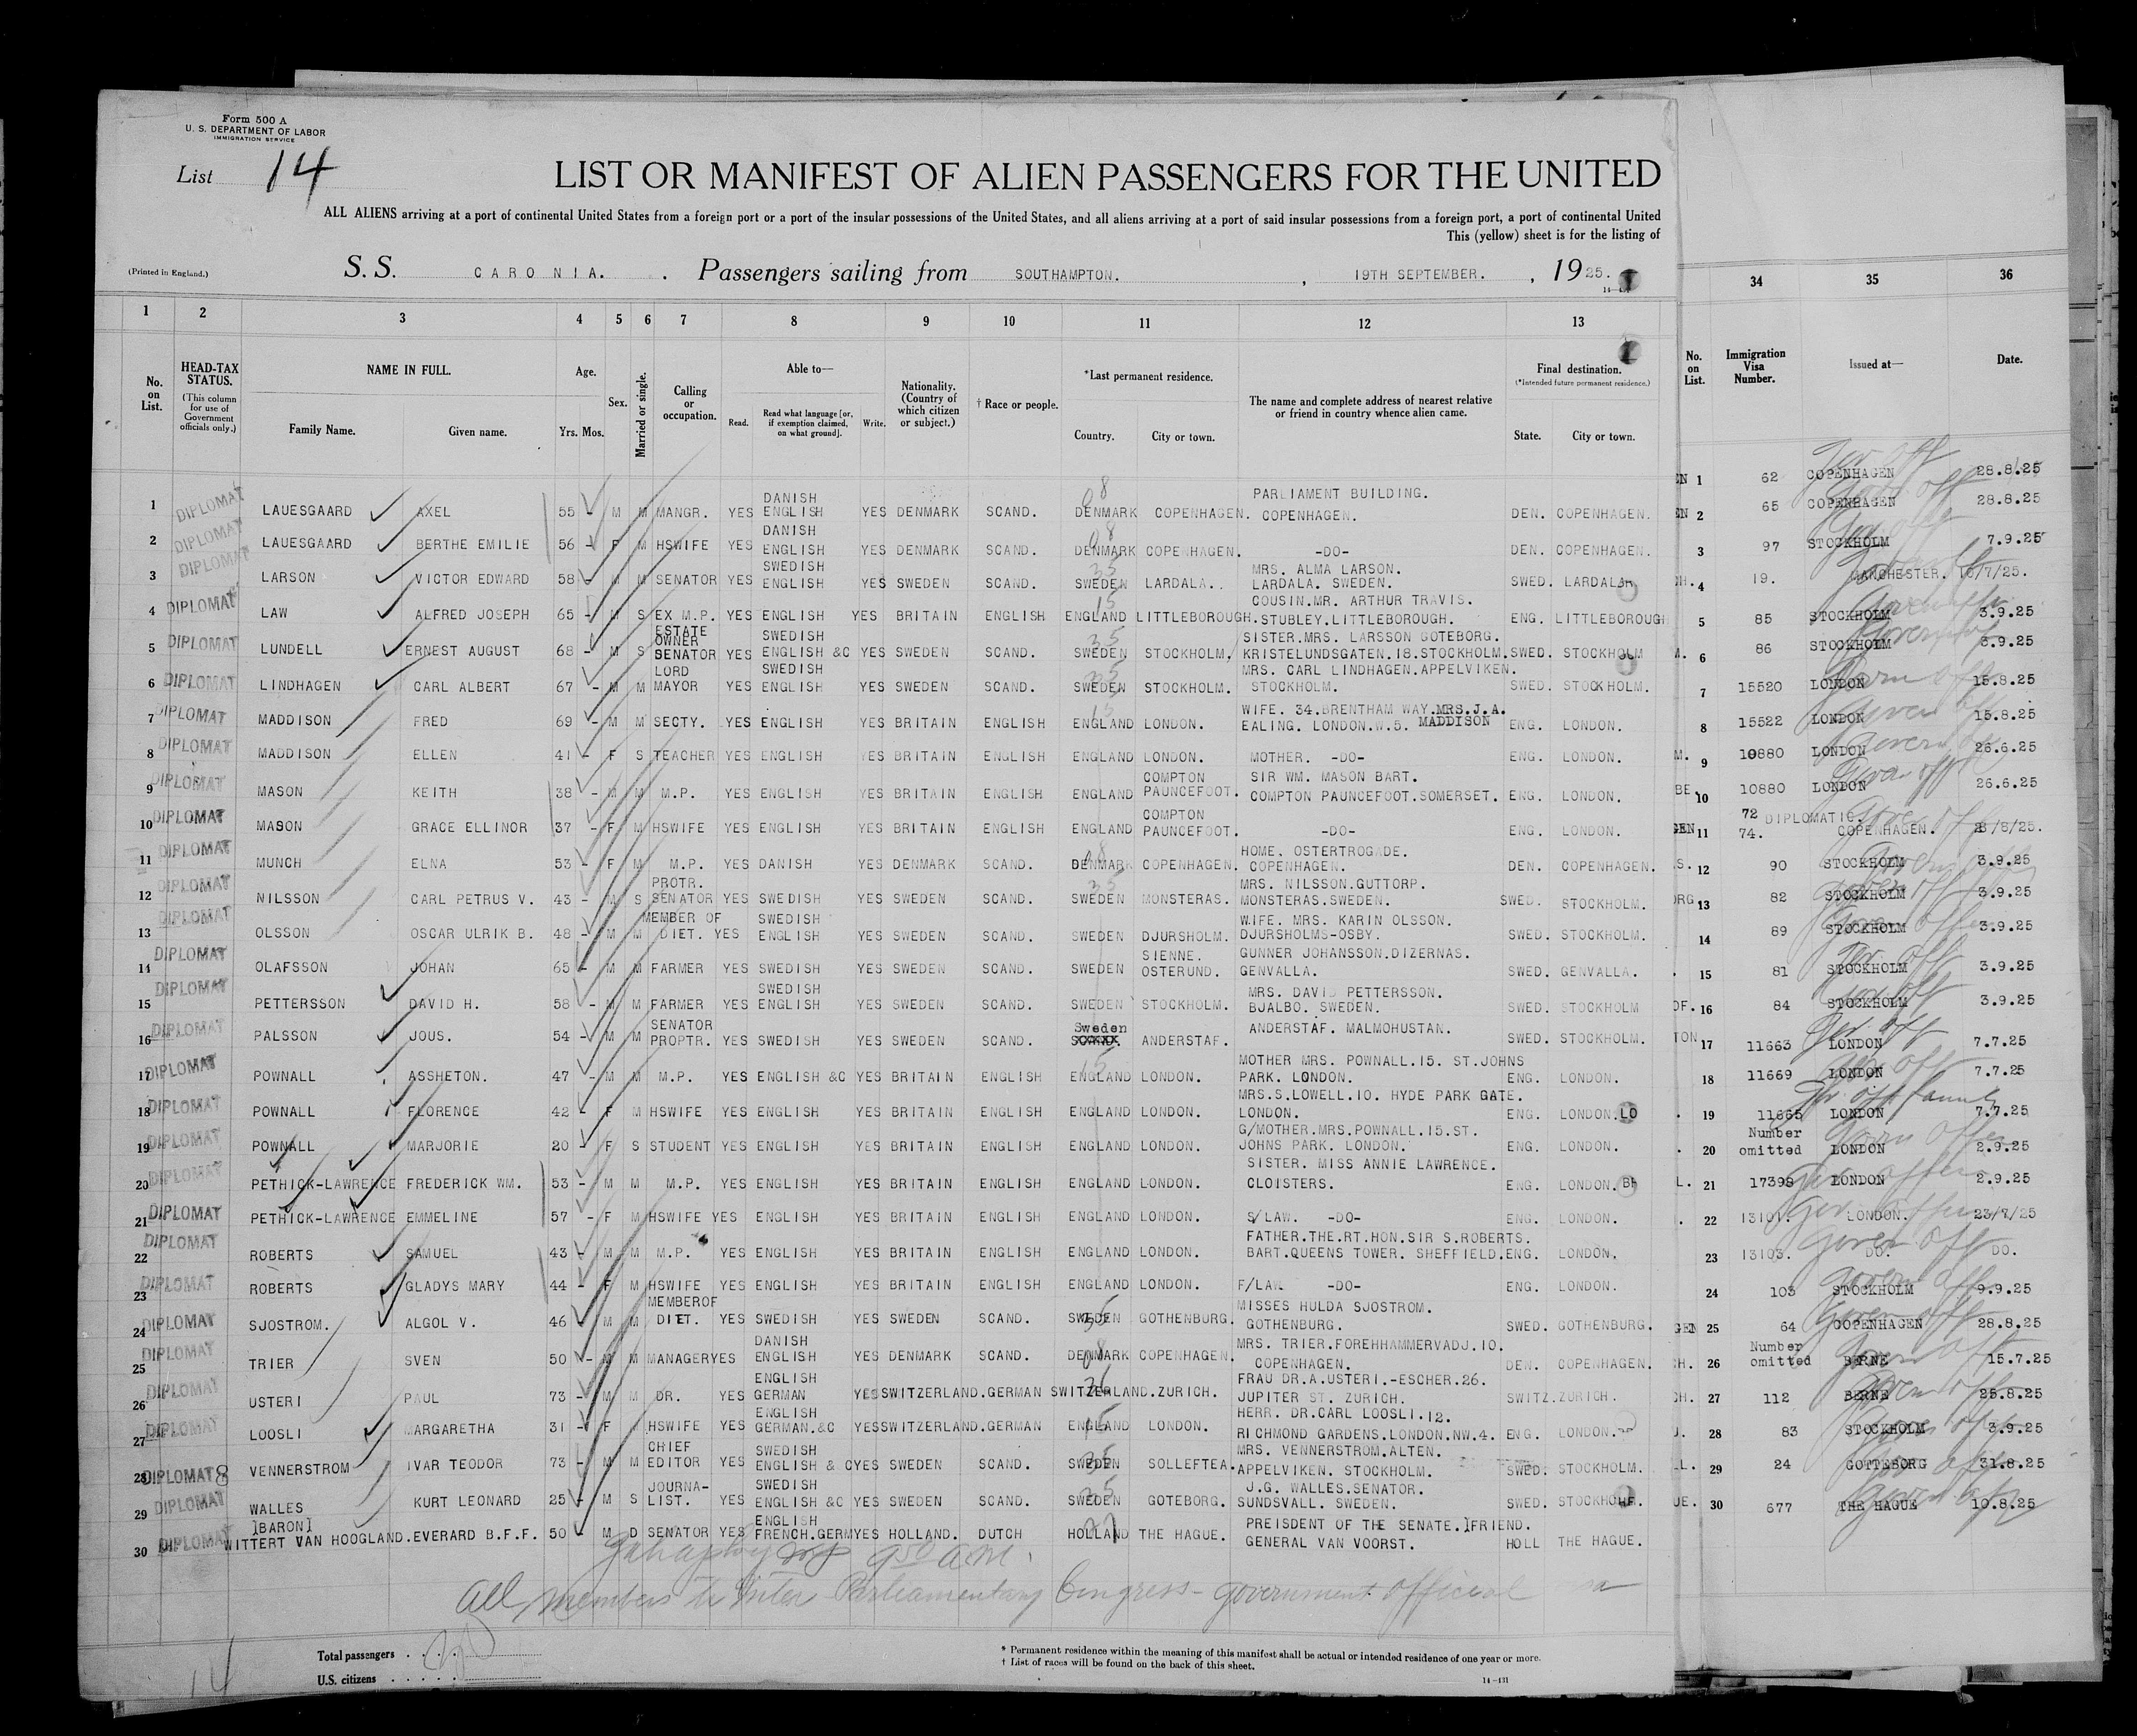 Form 500 A
U. S. DEPARTMENT OF LABOR
IMMIGRATION SERVICE
List 14
LIST OR MANIFEST OF ALIEN PASSENGERS FOR THE UNITED
ALL ALIENS arriving at a port of continental United States from a foreign port or a port of the insular possessions of the United States, and all aliens arriving at a port of said insular possessions from a foreign port, a port of continental United
This (yellow) sheet is for the listing of
(Printed in England.)
S. S. CARONIA. . Passengers sailing from SOUTHAMPTON. , 19TH SEPTEMBER. , 1925.
1 2 3 4 5 6 7 8 9 10 11 12 13 34 35 36
No. on List.
HEAD-TAX STATUS.
(This column for use of Government officials only.)
NAME IN FULL.
Family Name. Given name.
Age.
Yrs. Mos.
Sex.
Married or single.
Calling or occupation.
Able to—
Read. Read what language [or, if exemption claimed, on what ground]. Write.
Nationality. (Country of which citizen or subject.)
† Race or people.
*Last permanent residence.
Country. City or town.
The name and complete address of nearest relative or friend in country whence alien came.
Final destination.
(*Intended future permanent residence.)
State. City or town.
No. on List.
Immigration Visa Number.
Issued at—
Date.
1 DIPLOMAT LAUESGAARD AXEL 55 - M M MANGR. YES DANISH ENGLISH YES DENMARK SCAND. DENMARK COPENHAGEN. PARLIAMENT BUILDING. COPENHAGEN. DEN. COPENHAGEN. 1 62 COPENHAGEN 28.8.25
2 DIPLOMAT LAUESGAARD BERTHE EMILIE 56 - F M HSWIFE YES DANISH ENGLISH YES DENMARK SCAND. DENMARK COPENHAGEN. -DO- DEN. COPENHAGEN. 2 65 COPENHAGEN 28.8.25
3 DIPLOMAT LARSON VICTOR EDWARD 58 - M M SENATOR YES SWEDISH ENGLISH YES SWEDEN SCAND. SWEDEN LARDALA. MRS. ALMA LARSON. LARDALA. SWEDEN. SWED. LARDALA 3 97 STOCKHOLM 7.9.25
4 DIPLOMAT LAW ALFRED JOSEPH 65 - M S EX M.P. YES ENGLISH YES BRITAIN ENGLISH ENGLAND LITTLEBOROUGH. COUSIN.MR. ARTHUR TRAVIS. STUBLEY.LITTLEBOROUGH. ENG. LITTLEBOROUGH 4 19. MANCHESTER. 10/7/25.
5 DIPLOMAT LUNDELL ERNEST AUGUST 68 - M S ESTATE OWNER SENATOR YES SWEDISH ENGLISH &C YES SWEDEN SCAND. SWEDEN STOCKHOLM. SISTER.MRS. LARSSON GOTEBORG. KRISTELUNDSGATEN.18.STOCKHOLM. SWED. STOCKHOLM 5 85 STOCKHOLM 3.9.25
6 DIPLOMAT LINDHAGEN CARL ALBERT 67 - M M LORD MAYOR YES SWEDISH ENGLISH YES SWEDEN SCAND. SWEDEN STOCKHOLM. MRS. CARL LINDHAGEN.APPELVIKEN. STOCKHOLM. SWED. STOCKHOLM. 6 86 STOCKHOLM 3.9.25
7 DIPLOMAT MADDISON FRED 69 - M M SECTY. YES ENGLISH YES BRITAIN ENGLISH ENGLAND LONDON. WIFE. 34.BRENTHAM WAY.MRS.J.A. EALING. LONDON.W.5. MADDISON ENG. LONDON. 7 15520 LONDON 15.8.25
8 DIPLOMAT MADDISON ELLEN 41 - F S TEACHER YES ENGLISH YES BRITAIN ENGLISH ENGLAND LONDON. MOTHER. -DO- ENG. LONDON. 8 15522 LONDON 15.8.25
9 DIPLOMAT MASON KEITH 38 - M M M.P. YES ENGLISH YES BRITAIN ENGLISH ENGLAND COMPTON PAUNCEFOOT. SIR WM. MASON BART. COMPTON PAUNCEFOOT.SOMERSET. ENG. LONDON. 9 10880 LONDON 26.6.25
10 DIPLOMAT MASON GRACE ELLINOR 37 - F M HSWIFE YES ENGLISH YES BRITAIN ENGLISH ENGLAND COMPTON PAUNCEFOOT. -DO- ENG. LONDON. 10 10880 LONDON 26.6.25
11 DIPLOMAT MUNCH ELNA 53 - F M M.P. YES DANISH YES DENMARK SCAND. DENMARK COPENHAGEN. HOME. OSTERTROGADE. COPENHAGEN. DEN. COPENHAGEN. 11 72 74. DIPLOMATIC. COPENHAGEN. /8/25.
12 DIPLOMAT NILSSON CARL PETRUS V. 43 - M S PROTR. SENATOR YES SWEDISH YES SWEDEN SCAND. SWEDEN MONSTERAS. MRS. NILSSON.GUTTORP. MONSTERAS.SWEDEN. SWED. STOCKHOLM. 12 90 STOCKHOLM 3.9.25
13 DIPLOMAT OLSSON OSCAR ULRIK B. 48 - M M MEMBER OF DIET. YES SWEDISH ENGLISH YES SWEDEN SCAND. SWEDEN DJURSHOLM. WIFE. MRS. KARIN OLSSON. DJURSHOLMS-OSBY. SWED. STOCKHOLM. 13 82 STOCKHOLM 3.9.25
14 DIPLOMAT OLAFSSON JOHAN 65 - M M FARMER YES SWEDISH YES SWEDEN SCAND. SWEDEN SIENNE. OSTERUND. GUNNER JOHANSSON.DIZERNAS. GENVALLA. SWED. GENVALLA. 14 89 STOCKHOLM 3.9.25
15 DIPLOMAT PETTERSSON DAVID H. 58 - M M FARMER YES SWEDISH ENGLISH YES SWEDEN SCAND. SWEDEN STOCKHOLM. MRS. DAVID PETTERSSON. BJALBO. SWEDEN. SWED. STOCKHOLM 15 81 STOCKHOLM 3.9.25
16 DIPLOMAT PALSSON JOUS. 54 - M M SENATOR PROPTR. YES SWEDISH YES SWEDEN SCAND. Sweden ANDERSTAF. ANDERSTAF. MALMOHUSTAN. SWED. STOCKHOLM. 16 84 STOCKHOLM 3.9.25
17 DIPLOMAT POWNALL ASSHETON. 47 - M M M.P. YES ENGLISH &C YES BRITAIN ENGLISH ENGLAND LONDON. MOTHER MRS. POWNALL.15. ST.JOHNS PARK. LONDON. ENG. LONDON. 17 11663 LONDON 7.7.25
18 DIPLOMAT POWNALL FLORENCE 42 - F M HSWIFE YES ENGLISH YES BRITAIN ENGLISH ENGLAND LONDON. MRS.S.LOWELL.10. HYDE PARK GATE. LONDON. ENG. LONDON.LO 18 11669 LONDON 7.7.25
19 DIPLOMAT POWNALL MARJORIE 20 - F S STUDENT YES ENGLISH YES BRITAIN ENGLISH ENGLAND LONDON. G/MOTHER.MRS.POWNALL.15.ST. JOHNS PARK. LONDON. ENG. LONDON. 19 11665 LONDON 7.7.25
20 DIPLOMAT PETHICK-LAWRENCE FREDERICK WM. 53 - M M M.P. YES ENGLISH YES BRITAIN ENGLISH ENGLAND LONDON. SISTER. MISS ANNIE LAWRENCE. CLOISTERS. ENG. LONDON. 20 Number omitted LONDON 2.9.25
21 DIPLOMAT PETHICK-LAWRENCE EMMELINE 57 - F M HSWIFE YES ENGLISH YES BRITAIN ENGLISH ENGLAND LONDON. S/LAW. -DO- ENG. LONDON. 21 17398 LONDON 2.9.25
22 DIPLOMAT ROBERTS SAMUEL 43 - M M M.P. YES ENGLISH YES BRITAIN ENGLISH ENGLAND LONDON. FATHER.THE.RT.HON.SIR S.ROBERTS. BART.QUEENS TOWER. SHEFFIELD. ENG. LONDON. 22 13101. LONDON. 23/7/25
23 DIPLOMAT ROBERTS GLADYS MARY 44 - F M HSWIFE YES ENGLISH YES BRITAIN ENGLISH ENGLAND LONDON. F/LAW -DO- ENG. LONDON. 23 13103. DO. DO.
24 DIPLOMAT SJOSTROM. ALGOL V. 46 M M MEMBEROF DIET. YES SWEDISH YES SWEDEN SCAND. SWEDEN GOTHENBURG. MISSES HULDA SJOSTROM. GOTHENBURG. SWED. GOTHENBURG. 24 103 STOCKHOLM 9.9.25
25 DIPLOMAT TRIER SVEN 50 - M M MANAGER YES DANISH ENGLISH YES DENMARK SCAND. DENMARK COPENHAGEN. MRS. TRIER.FOREHHAMMERVADJ.10. COPENHAGEN. DEN. COPENHAGEN. 25 64 COPENHAGEN 28.8.25
26 DIPLOMAT USTERI PAUL 73 - M M DR. YES ENGLISH GERMAN YES SWITZERLAND. GERMAN SWITZERLAND. ZURICH. FRAU DR.A.USTERI.-ESCHER.26. JUPITER ST. ZURICH. SWITZ. ZURICH. 26 Number omitted BERNE 15.7.25
27 DIPLOMAT LOOSLI MARGARETHA 31 - F HSWIFE YES ENGLISH GERMAN.&C YES SWITZERLAND. GERMAN ENGLAND LONDON. HERR. DR.CARL LOOSLI.12. RICHMOND GARDENS.LONDON.NW.4. ENG. LONDON. 27 112 BERNE 25.8.25
28 DIPLOMAT 8 VENNERSTROM IVAR TEODOR 73 - M M CHIEF EDITOR YES SWEDISH ENGLISH & C YES SWEDEN SCAND. SWEDEN SOLLEFTEA. MRS. VENNERSTROM.ALTEN. APPELVIKEN. STOCKHOLM. SWED. STOCKHOLM. 28 83 STOCKHOLM 3.9.25
29 DIPLOMAT WALLES KURT LEONARD 25 - M S JOURNA-LIST. YES SWEDISH ENGLISH &C YES SWEDEN SCAND. SWEDEN GOTEBORG. J.G. WALLES.SENATOR. SUNDSVALL. SWEDEN. SWED. STOCKHOLM. 29 24 GOTTEBORG 31.8.25
30 DIPLOMAT [BARON] WITTERT VAN HOOGLAND. EVERARD B.F.F. 50 - M D SENATOR YES ENGLISH FRENCH.GERM YES HOLLAND. DUTCH HOLLAND THE HAGUE. PREISDENT OF THE SENATE.]FRIEND. GENERAL VAN VOORST. HOLL THE HAGUE. 30 677 THE HAGUE 10.8.25
950 a.m.
All members to Inter Parliamentary Congress - government official
Total passengers . . . .
U.S. citizens . . . . .
14
* Permanent residence within the meaning of this manifest shall be actual or intended residence of one year or more.
† List of races will be found on the back of this sheet.
14—431